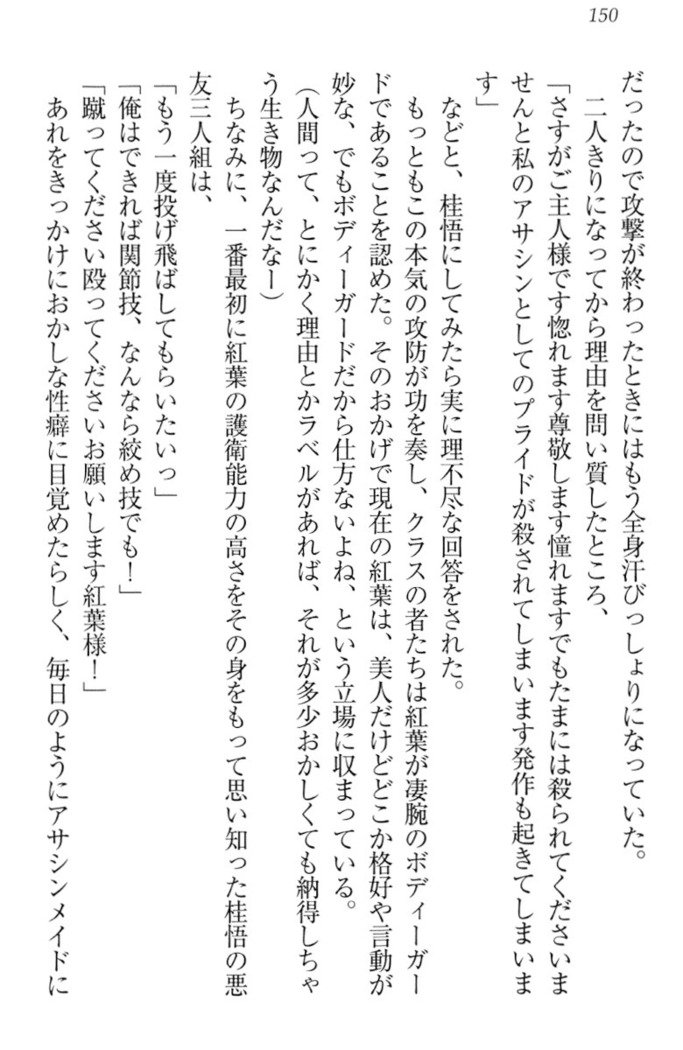 150
だったので攻撃が終わったときにはもう全身汗びっしょりになっていた。
二人きりになってから理由を問い質したところ、
「さすがご主人様です惚れます尊敬します憧れますでもたまには殺られてくださいま
せんと私のアサシンとしてのプライドが殺されてしまいます発作も起きてしまいま
す」
などと、桂悟にしてみたら実に理不尽な回答をされた。
もっともこの本気の攻防が功を奏し、クラスの者たちは紅葉が凄腕のボディーガー
ドであることを認めた。そのおかげで現在の紅葉は、美人だけどどこか格好や言動が
妙な、でもボディーガードだから仕方ないよね、という立場に収まっている。
（人間って、とにかく理由とかラベルがあれば、それが多少おかしくても納得しちゃ
う生き物なんだなー）
ちなみに、一番最初に紅葉の護衛能力の高さをその身をもって思い知った桂悟の悪
友三人組は、
「もう一度投げ飛ばしてもらいたいっ」
「俺はできれば関節技、なんなら絞め技でも！」
「蹴ってください殴ってくださいお願いします紅葉様！」
あれをきっかけにおかしな性癖に目覚めたらしく、毎日のようにアサシンメイドに